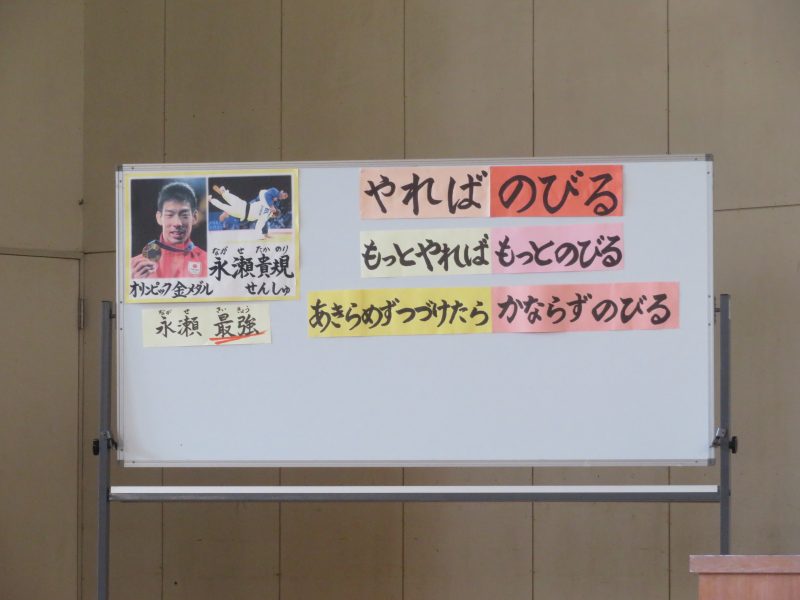 ながせ たかのり
永瀬貴規
オリンピック金メダル せんしゅ
ながせ さいきょう
永瀬 最強
やれば のびる
もっとやれば もっとのびる
あきらめずつづけたら かならずのびる